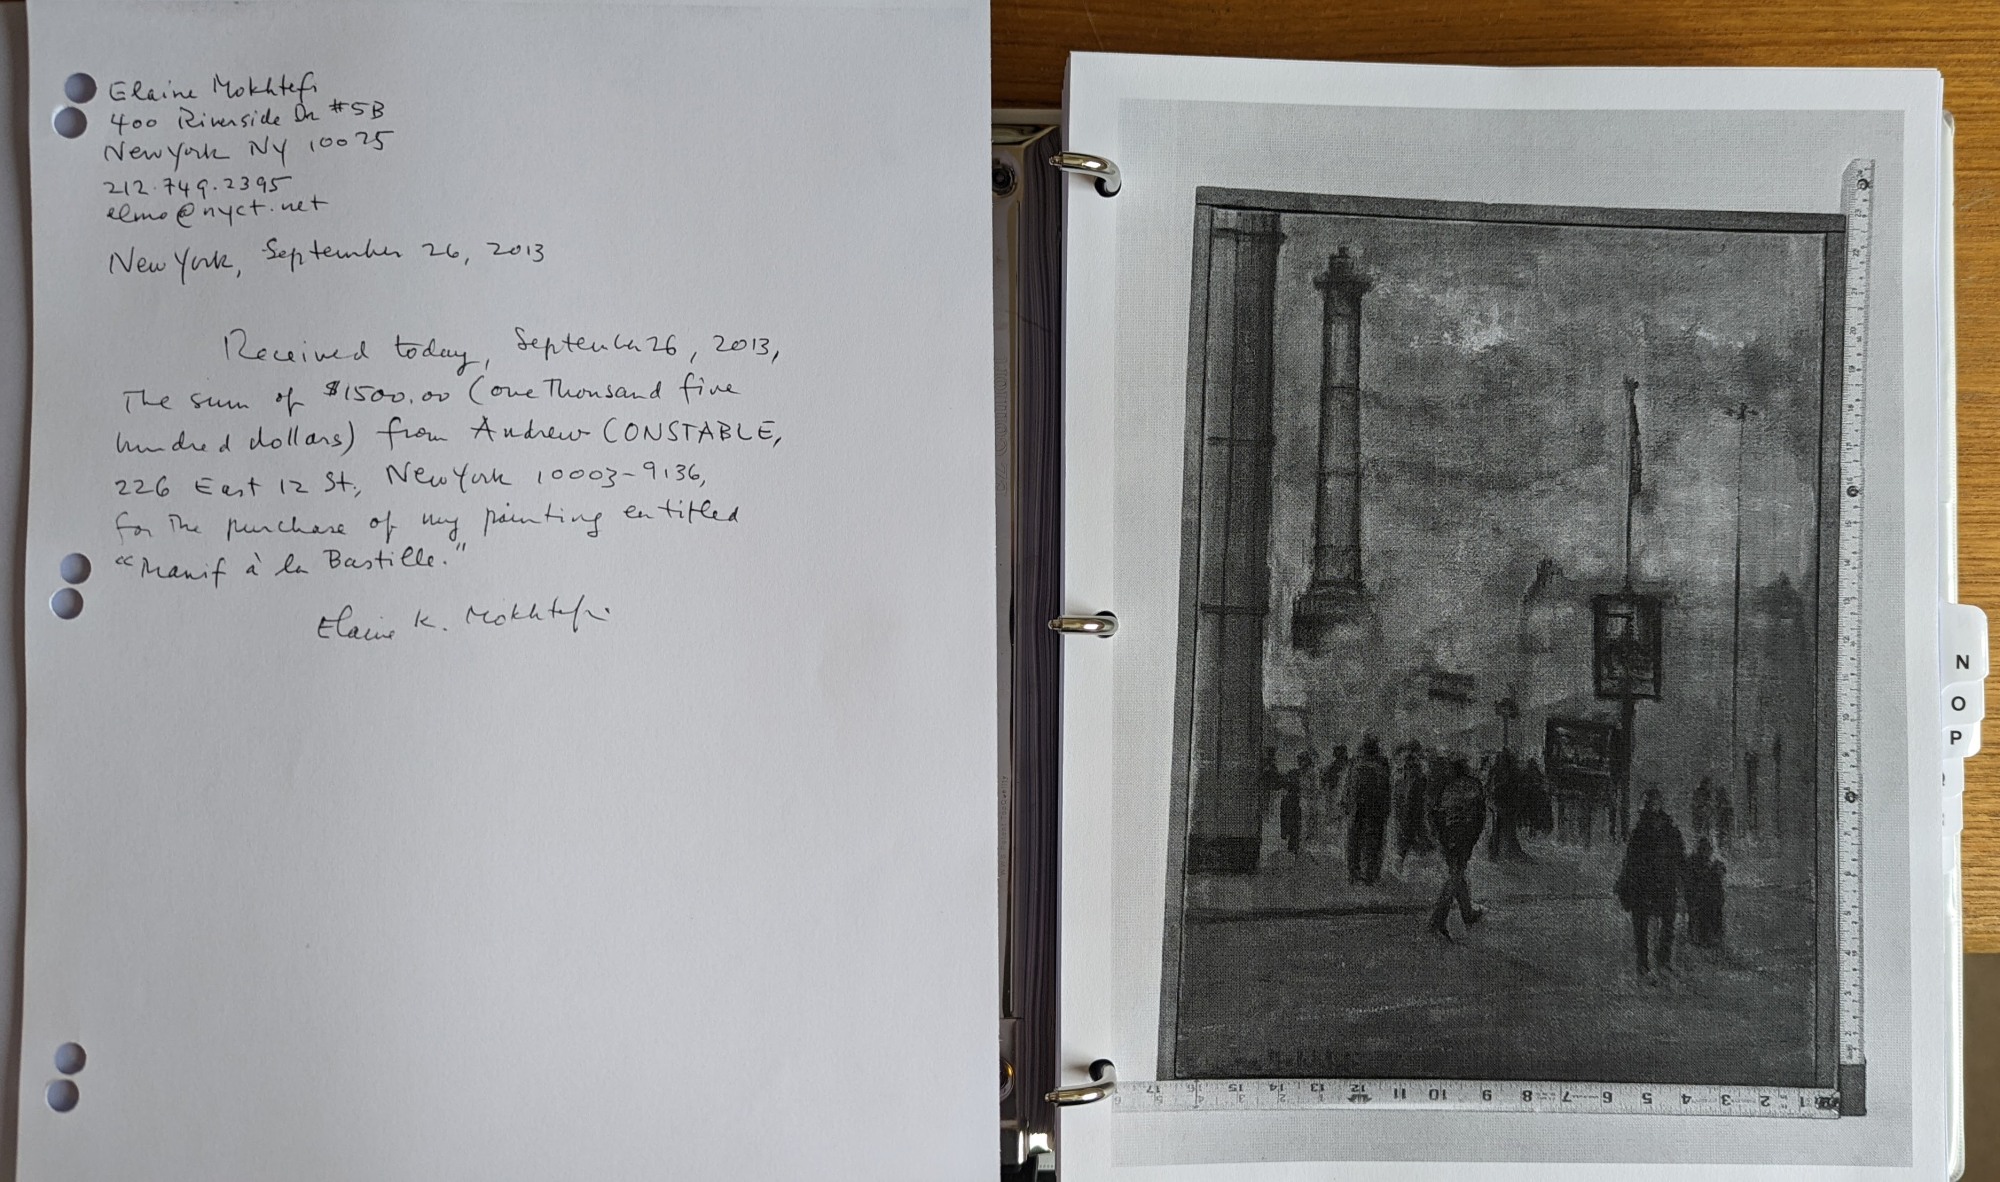 Elaine Mokhtefi
400 Riverside Dr #5B
New York NY 10025
212.749.2395
elmo@nyct.net
New York, September 26, 2013
Received today, September 26, 2013,
The sum of $1500.00 (one Thousand five
hundred dollars) from Andrew CONSTABLE,
226 East 12 St., New York 10003-9136,
for The purchase of my painting entitled
"Manif à la Bastille."
Elaine K. Mokhtefi
N
O
P
17 16 15 14 13 12 11 10 9 8 7 6 5 4 3 2 1